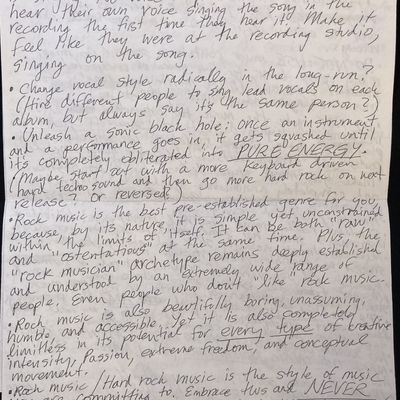 hear their own voice singing the song in the
recording the first time they hear it. Make it
feel like they were at the recording studio,
singing on the song.
• Change vocal style radically in the long-run?
(Hire different people to sing lead vocals on each
album, but always say it's the same person?)
• Unleash a sonic black hole: once an instrument
and a performance goes in, it gets squashed until
it's completely obliterated into PURE ENERGY.
(Maybe start out with a more keyboard driven
hard techno sound and then go more hard rock on next
release? Or reversed?)
• Rock music is the best pre-established genre for you,
because, by its nature, it is simple yet unconstrained
within the limits of itself. It can be both "raw"
and "ostentatious" at the same time. Plus, the
"rock musician" archetype remains deeply established
and understood by an extremely wide range of
people. Even people who don't like rock music.
• Rock music is also beautifully boring, unassuming,
humble and accessible, yet it is also completely
limitless in its potential for every type of creative
intensity, passion, extreme freedom, and conceptual
movement.
• Rock music/Hard rock music is the style of music
are committing to. Embrace this and NEVER